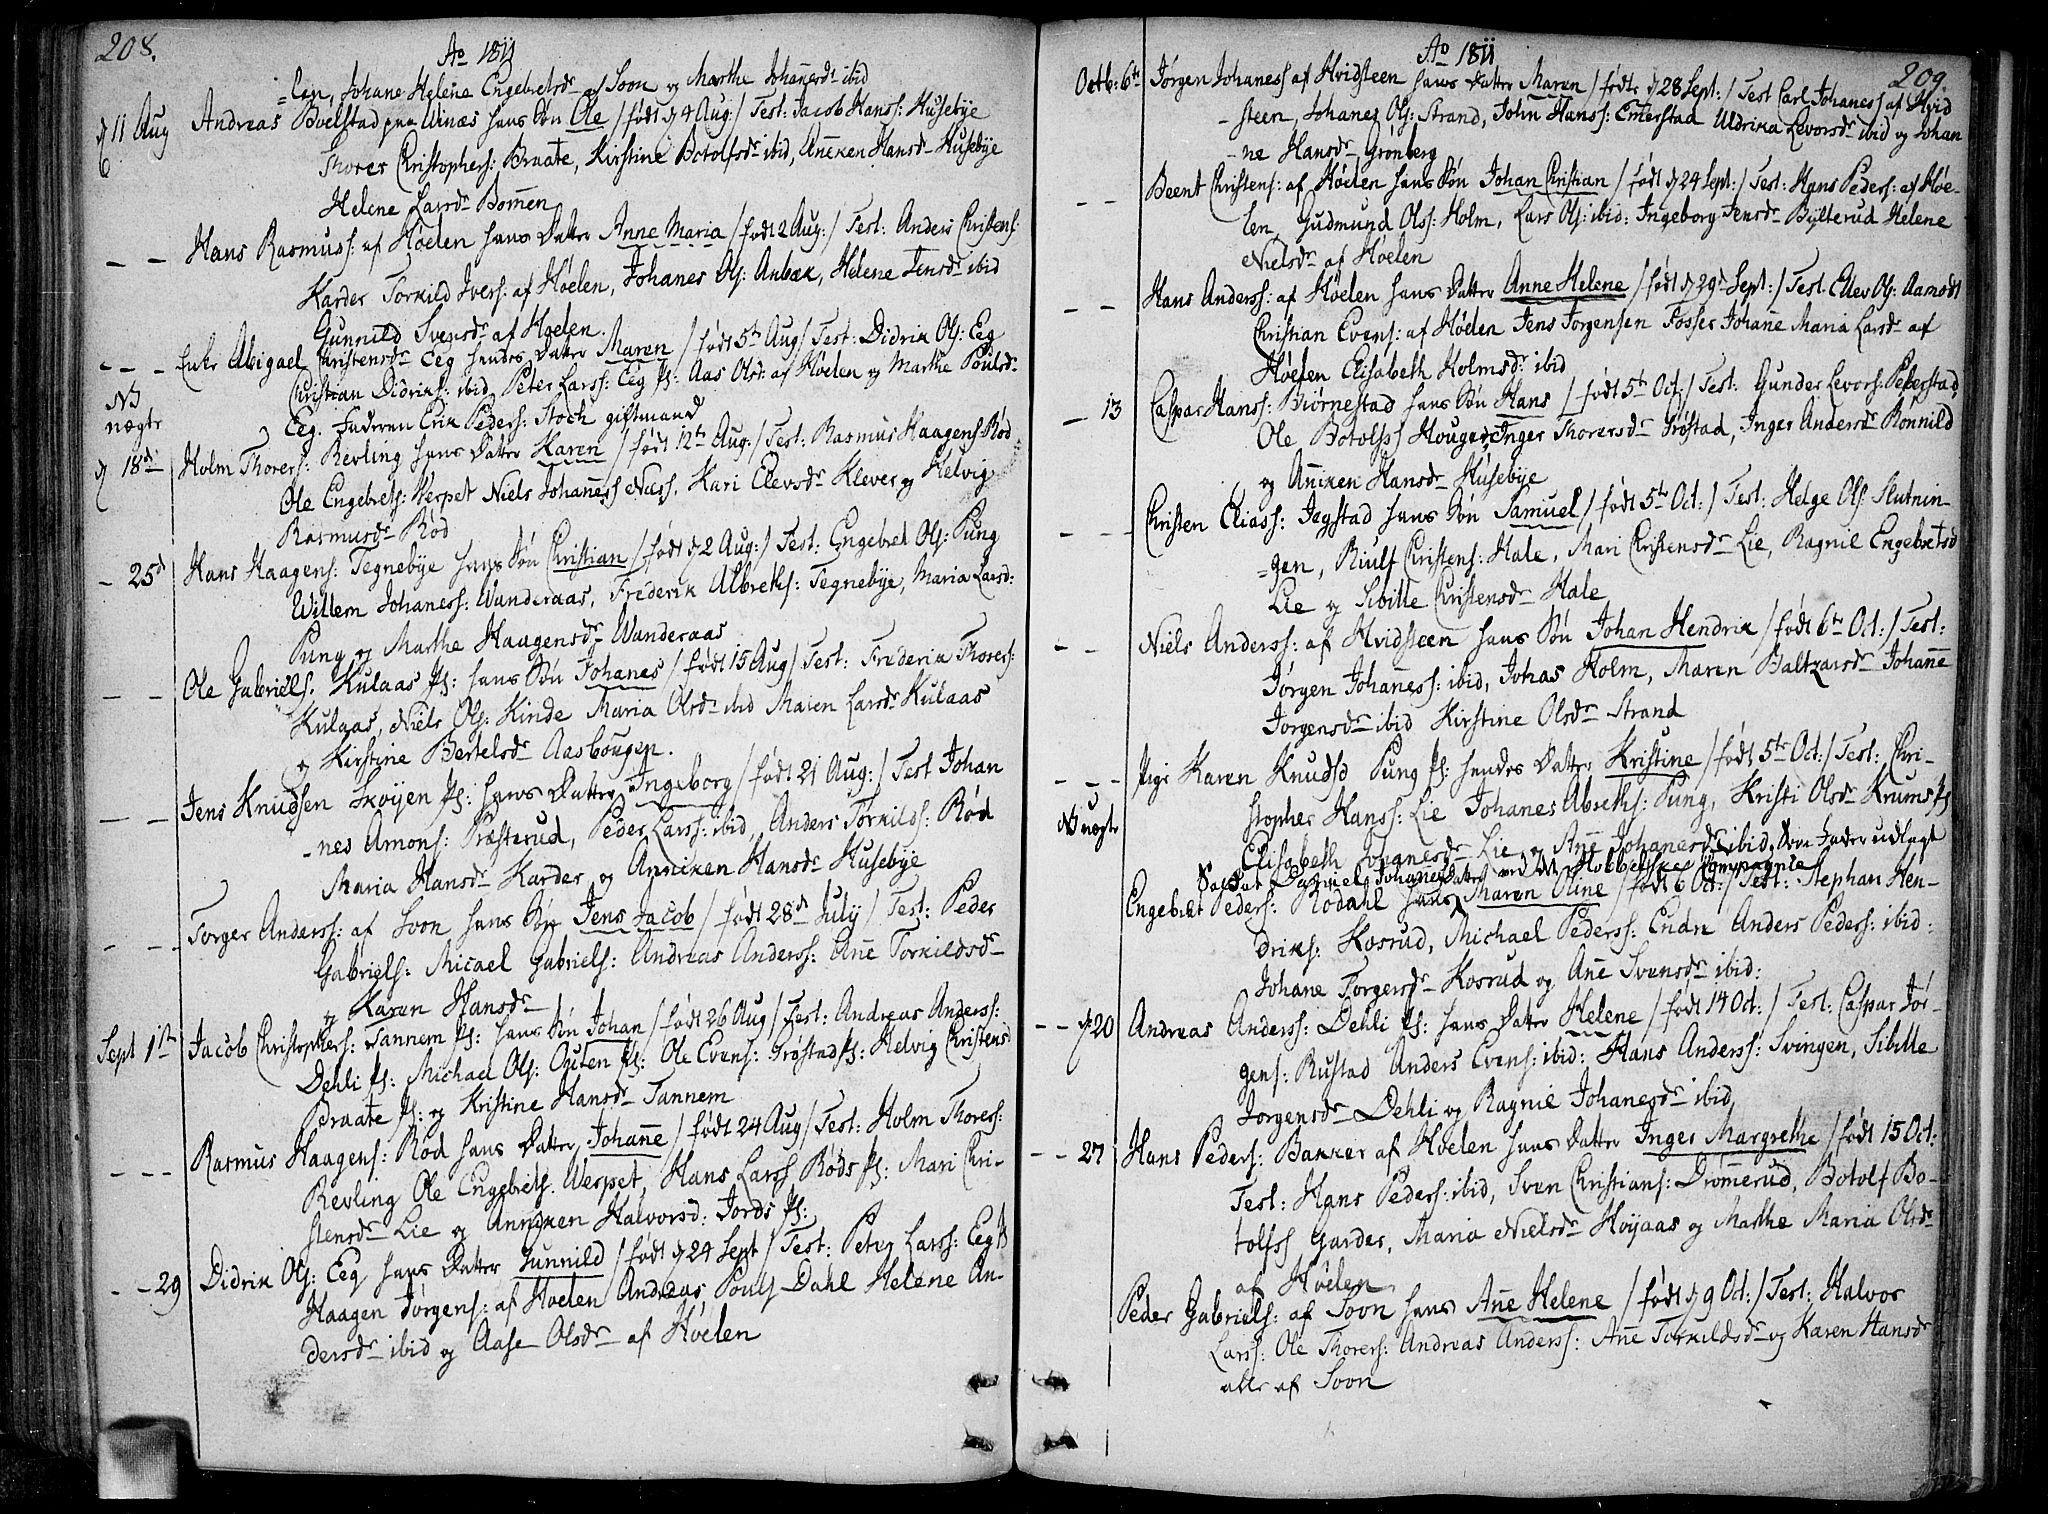 208.
Ao 1811
=len, Johane Helene Engebretsdr af Soon og Marthe Johanesdr ibid
d 11 Aug Andreas Boelstad paa Winæs hans Søn Ole / født d 4 Aug: / Test: Jacob Hanss: Husebye
6 Thorer Christophers: Braate, Kirstine Botolfsdr ibid, Aneken Hansdr Husebye
Helene Larsdr Bommen
- - Hans Rasmuss: af Høelen hans Datter Anne Maria / født 2 Aug: / Test: Anders Christens:
Karder Torkild Ivers: af Høelen, Johanes Ols: Anbæk, Helene Jensdr ibid
Gunnild Svensdr af Hoelen
- - - Enke Abigael Christensdr Eeg hendes Datter Maren / født 5te Aug / Test: Didrik Ols: Eeg
NB Christian Didriks: ibid, Peter Larss: Eeg Ps: Aas Olsdr: af Høelen og Marthe Poulsdr
nægte Eeg. Faderen Erik Peders: Stoch giftmand
d 18de Holm Thorers: Revling hans Datter Karen / født 12te Aug: / Test: Rasmus Haagens Rød
Ole Engebrets: Werpet Niels Johaness Næss, Kari Elevsdr Klever og Helvig
Rasmusdr Rød
- 25d Hans Haagens: Tegnebye hans Søn Christian / født d 2 Aug: / Test: Engebret Ols: Pung
Willem Johaness: Wanderaas, Frederik Albreths: Tegnebye, Maria Larsd:
Pung og Marthe Haagensdr Wanderaas
- - Ole Gabriels. Kulaas Ps: hans Søn Johanes / født 15 Aug / Test: Frederia Thorers:
Kulaas, Niels Ols: Kinde Maria Olsdr ibid Maren Larsdr Kulaas
og Kirstine Bertelsdr Aasbougen.
- - Jens Knudsen Skoyen Ps: hans Datter Ingeborg / født 21 Aug: / Test Johan
-nes Amons: Præsterud, Peder Larss: ibid, Anders Torkilds: Rød
Maria Hansdr Karder og Anniken Hansdr Husebye
- - Torger Anderss: af Soon hans Søn Jens Jacob / født 28d July / Test: Peder
Gabriels: Micael Gabriels: Andreas Anderss: Ane Torkildsdr
og Karen Hansdr
Sept 1te Jacob Christophers: Tannem Ps: hans Søn Johan / født 26 Aug / Test: Andreas Anderss:
Dehli Ps: Michael Ols: Outen Ps: Ole Evens: Trøstad Ps: Helvig Christensd
Braate Ps: og Kristine Hansdr Tannem
- - - Rasmus Haagens: Rød hans Datter Johanne / født 24 Aug / Test: Holm Thorers:
Revling Ole Engebrets. Werpet, Hans Larss Røds Ps: Mari Chri-
stensdr Lie og Anniken Halvorsd: Jords Ps:
- - 29 Didrik Ols: Eeg hans Datter Gunnild / født d 24 Sept / Test: Peter Larss: Eeg Ps
Haagen Jørgens: af Hoelen Andreas Pouls Dahl Helene An-
dersdr ibid og Aase Olsdr af Høelen
209.
Ao 1811
Octb: 6te Jørgen Johaness af Hvidsteen hans Datter Maren / føde d 28 Sept: / Test Carl Johaness af Hvid
-steen, Johanes Ols: Strand, John Hanss: Emerstad Uldrika Levorsdr ibid og Johan
-ne Hansdr Grønberg
- - Beent Christens: af Høelen hans Søn Johan Christian / født d 24 Sept: / Test: Hans Peders: af Høe-
len, Gudmund Olss: Holm, Lars Ols: ibid: Ingeborg Jensdr Bylterud Helene
Nielsdr af Høelen
- - Hans Anderss: af Høelen hans Datter Anne Helene / født d 29de Sept: / Test. Ellev Ols: Aamodt
Christian Evens: af Høelen Jens Jorgensen Fosser Johanne Maria Larsdr af
Høelen Elisabeth Holmsdr: ibid
- 13 Caspar Hanss: Biørnestad hans Søn Hans / født 5te Oct: / Test: Gunder Levors: Peberstad,
Ole Botolfss Houger, Inger Thorersdr Trøstad, Inger Andersdr Ronnild
og Aneken Hansdr Husebye
- - - Christen Eliass: Jegstad hans Søn Samuel / født 5te Oct: / Test: Helge Ols: Slutnin-
=gen, Riulf Christens: Hale, Mari Christensdr Lie, Ragnil Engebretsd
Lie og Sibille Christensdr Hale
- - Niels Anderss: af Hvidsteen hans Søn Johan Hendrik / født 6te Oct: / Test:
Jørgen Johaness: ibid, Johas Holm, Maren Baltzarsdr Johanne
Jorgensdr ibid Kirstine Olsdr Strand
- - - Pige Karen Knudsd Pung Ps: hendes Datter Kristine / født 5te Oct: / Test: Chri-
NB nægte stopher Hanss: Lie Johanes Abreths: Pung, Kristi Olsdr Krums Ps
Elisabeth Johanesdr Lie og Ane Johanesdr ibid, Som Fader udlagt
Soldat Daniel Johanes ved det Hobbelske Compagnie
Engebret Peders: Rodahl hans Datter Maren Oline / født 6 Oct: / Test: Stephan Hen-
driks: Kosrud, Michael Pederss: Endn Anders Peders: ibid:
Johane Torgersdr Kosrud og Ane Svensdr ibid:
- - d 20 Andreas Anderss: Dehli Ps: hans Datter Helene / født 14 Oct: / Test: Caspar Jør-
gens: Rustad Anders Evens: ibid: Hans Anderss: Svingen, Sibille
Jorgensdr Dehli og Ragnil Johanesdr ibid,
- - 27 Hans Peders: Bakker af Hoelen hans Datter Inger Margrethe / født 15 Oct:
Test: Hans Peders: ibid, Sven Christians: Drømmerud, Botolf Bo-
tolfss Garder, Maria Nielsdr Hoyaas og Marthe Maria Olsdr
af Høelen
Peder Gabriels: af Soon hans Ane Helene / født d 9 Oct: / Test: Halvor
Larss: Ole Thorers: Andreas Anderss: Ane Torkildsdr og Karen Hansdr
alle af Soon